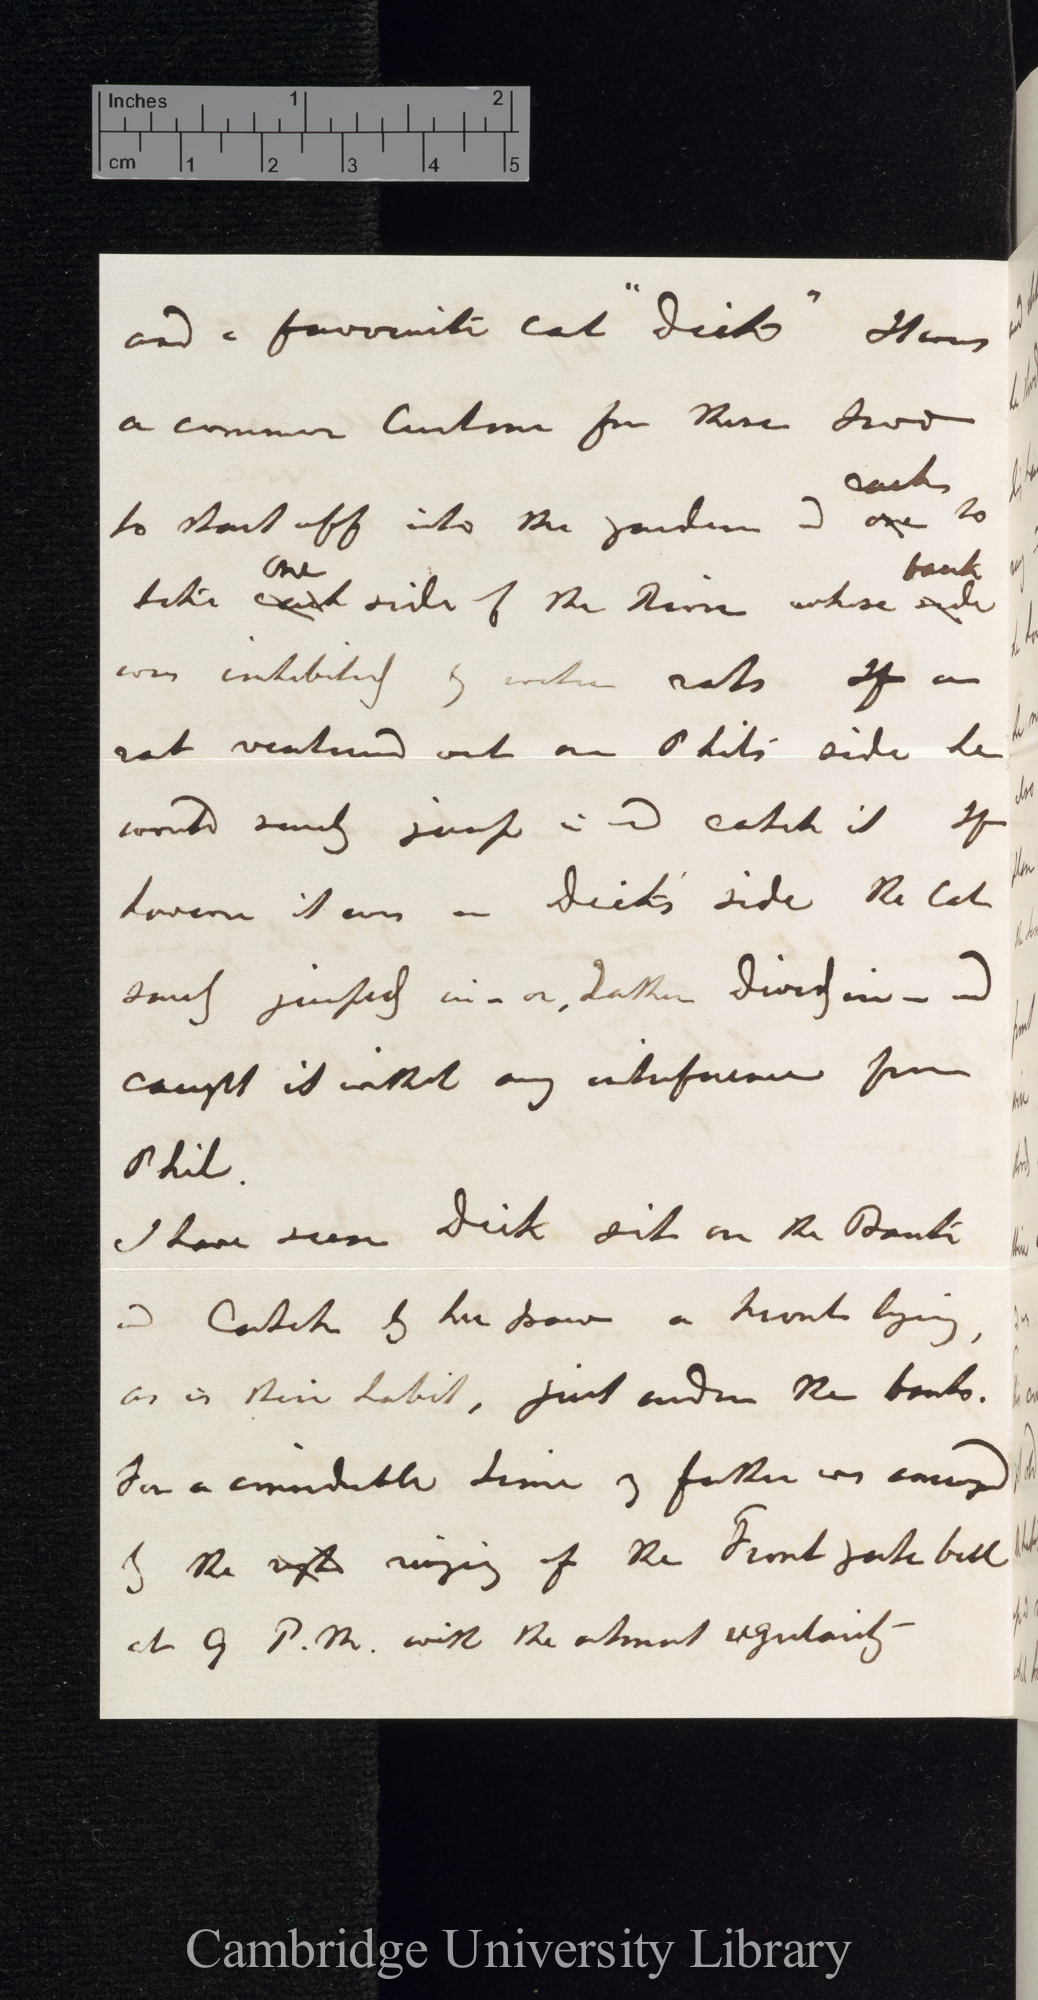 Inches 1 2
cm 1 2 3 4 5
and a favourite cat "Dick" It was
a common Custom for these two
each
to start off into the garden and one to
one bank
take each side of the River whose side
was inhabited by water rats If a
rat ventured out on Phil's side he
would surely jump in and catch it If
however it was on Dick's side the Cat
surely jumped in - or, rather Dived in - and
caught it without any interference from
Phil.
I have seen Dick sit on the Bank
and Catch by her paw a trout lying,
as is their habit, just under the banks.
For a considerable time my father was annoyed
by the ringing of the Front gate bell
at 9 P.M. with the utmost regularity
Cambridge University Library